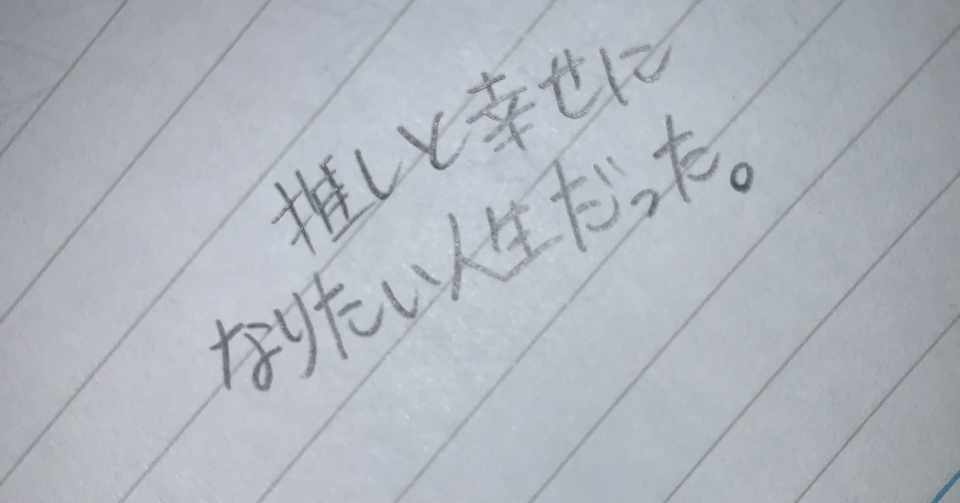 推しと幸せに
なりたい人生だった。